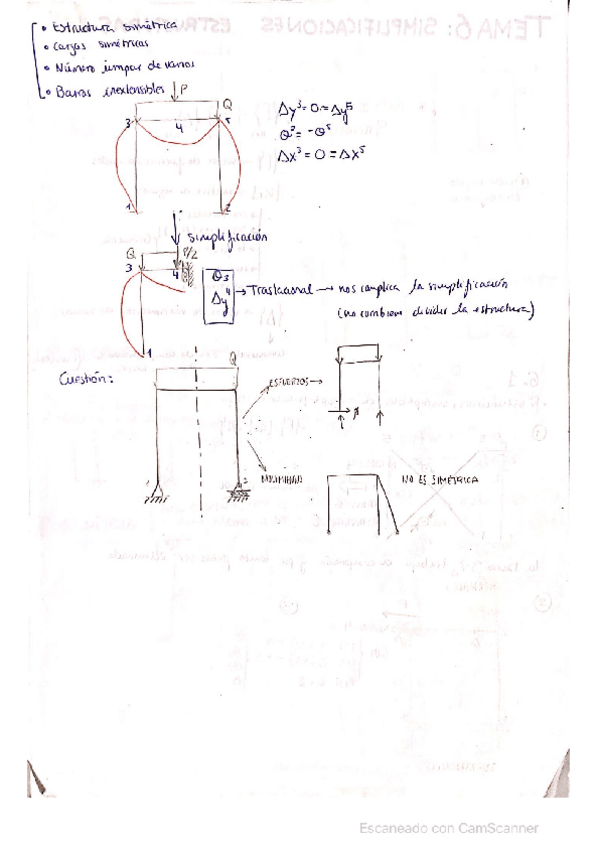 • Estructura simétrica
• Cargas simétricas
• Número impar de vanos
• Barras inextensibles
P
Q
3
4
5
1
2
Δy³ = 0 = Δy⁵
θ³ = -θ⁵
Δx³ = 0 = Δx⁵
simplificación
Q
P/2
3
4
1
θ3
Δy⁴
→ Traslacional → nos complica la simplificación
(no conviene dividir la estructura)
Cuestión:
Q
ESFUERZOS →
NO ES SIMÉTRICA
Escaneado con CamScanner